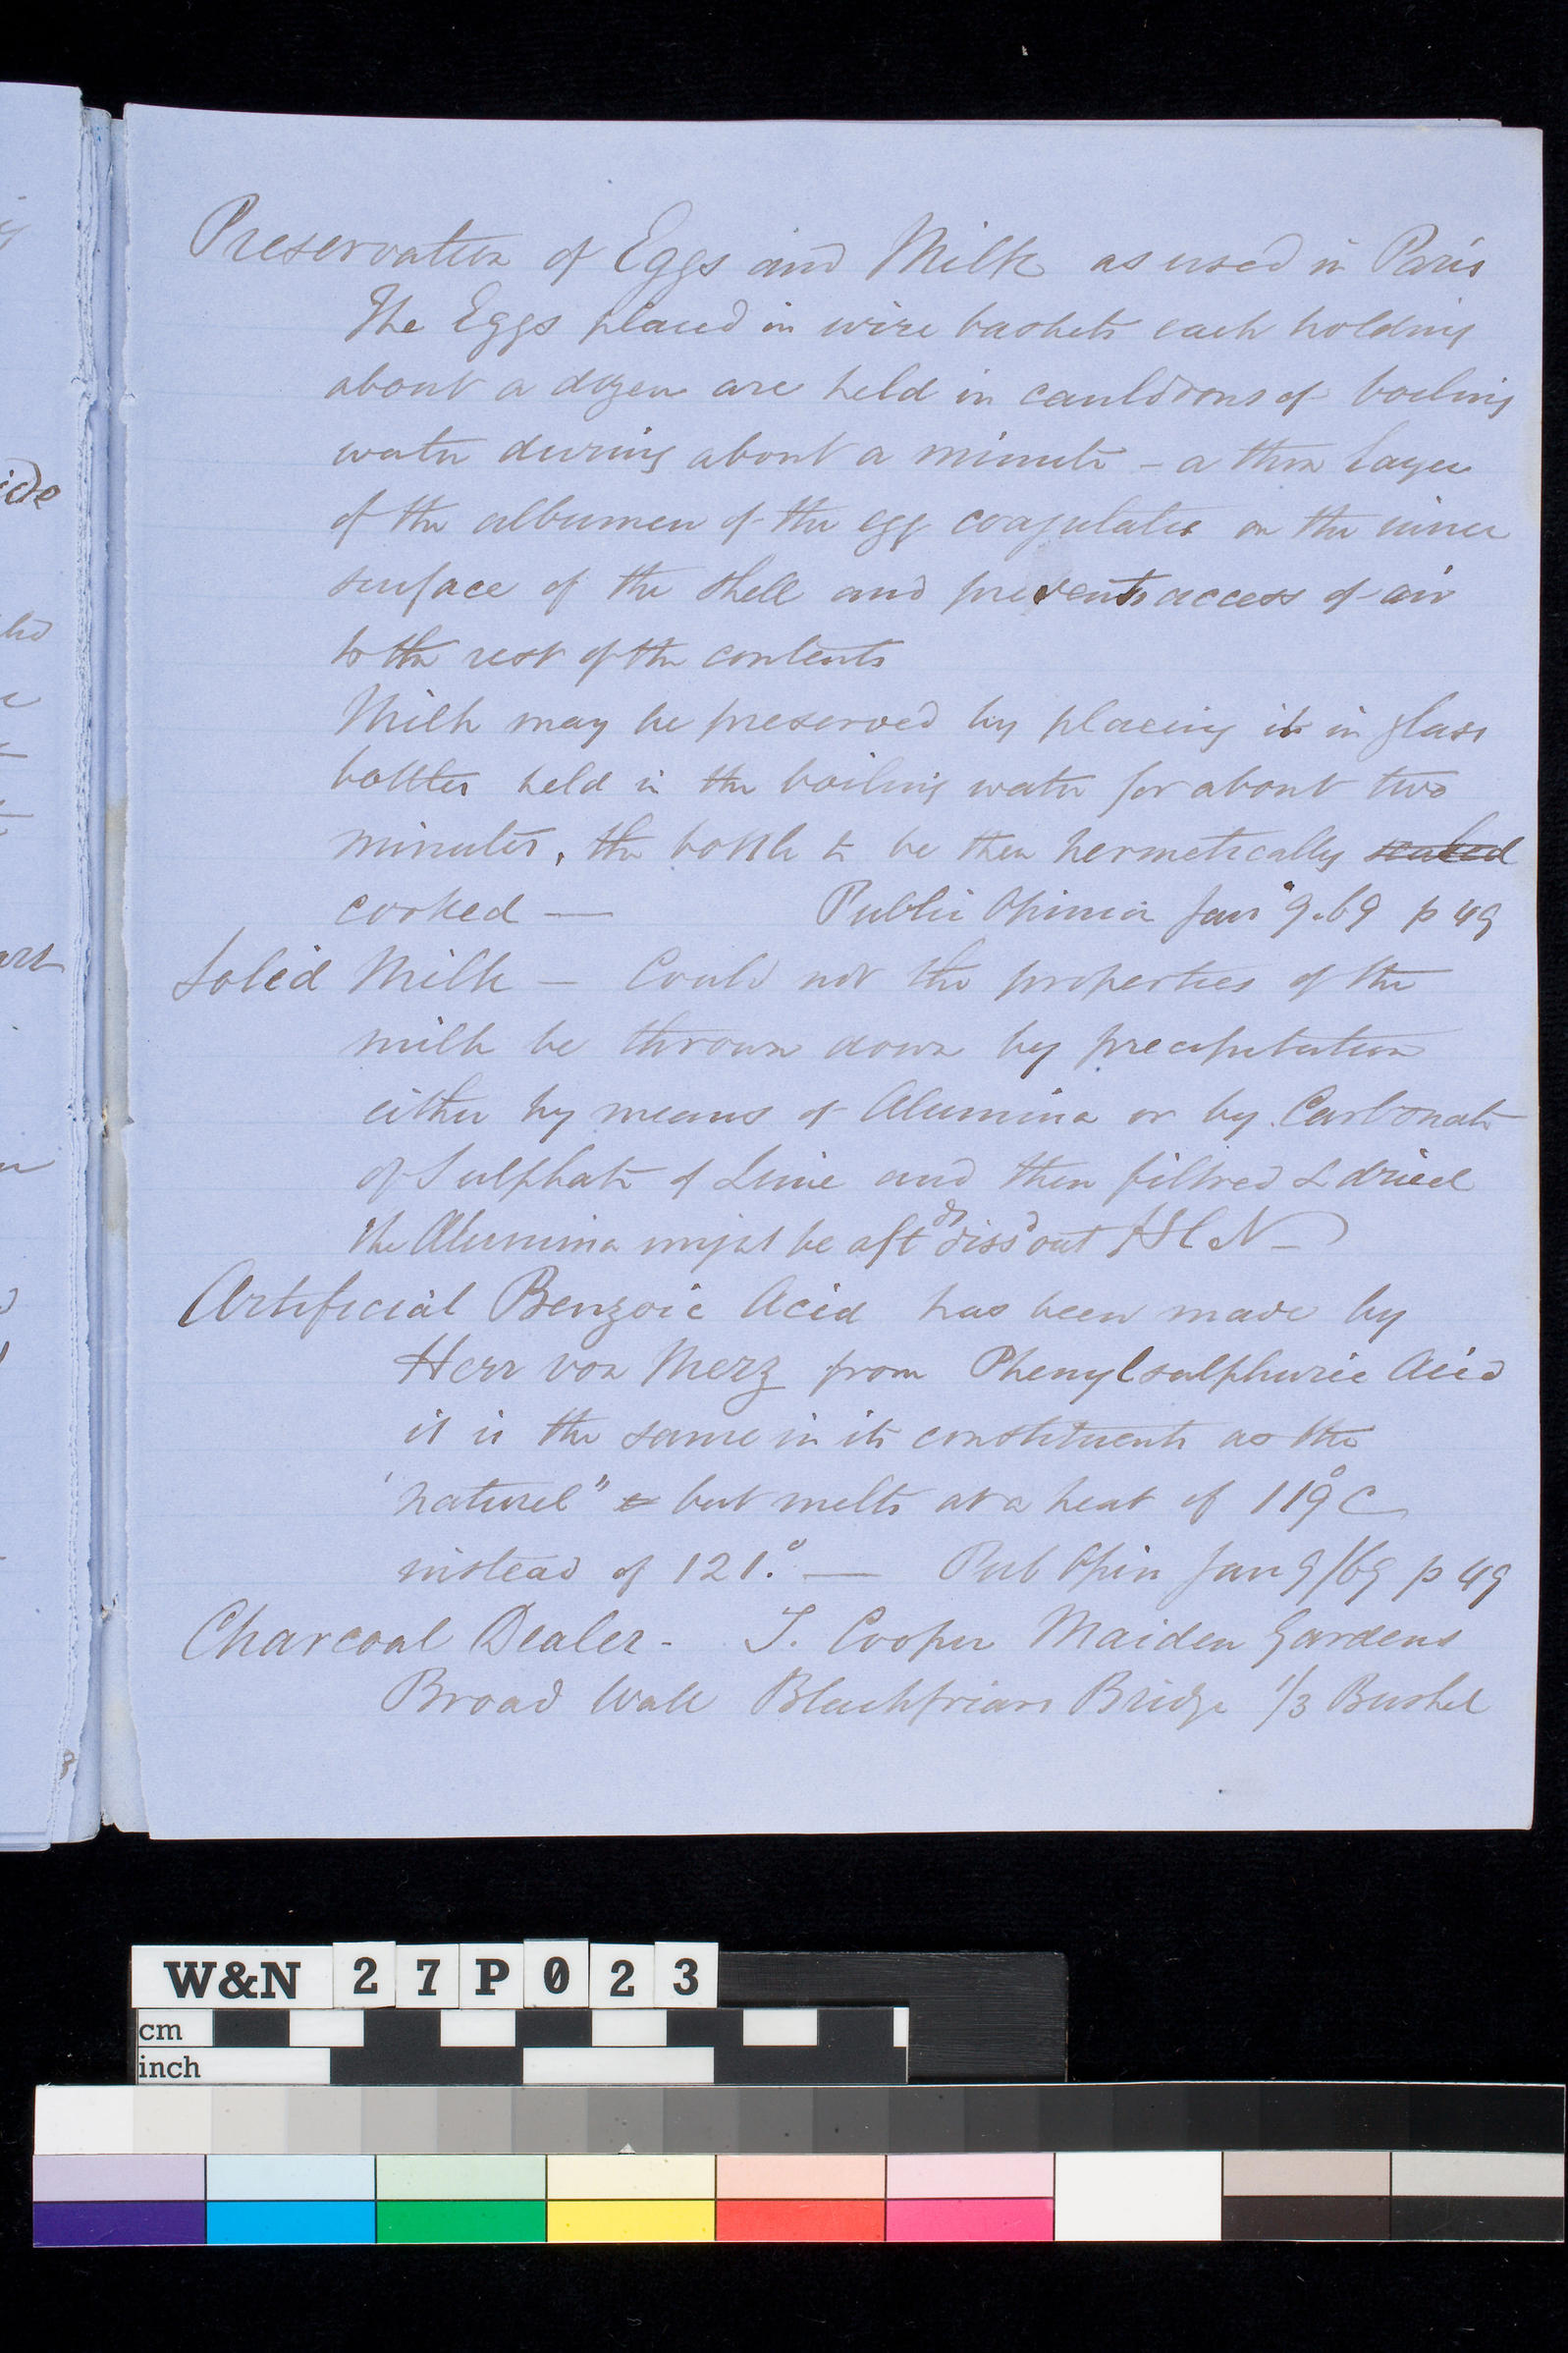 Preservation of Eggs and Milk as used in Paris
The Eggs placed in wire baskets each holding
about a dozen are held in cauldrons of boiling
water during about a minute – a thin layer
of the albumen of the egg coagulates on the inner
surface of the shell and prevents access of air
to the rest of the contents
Milk may be preserved by placing it in glass
bottles held in the boiling water for about two
minutes, the bottle to be then hermetically sealed
corked —
Public Opinion Jan 9.69 p 49
Solid Milk – Could not the properties of the
milk be thrown down by precipitation
either by means of Alumina or by Carbonate
of Sulphate of Lime and then filtred & dried
the Alumina might be aftds dissd out HCN
Artificial Benzoic Acid has been made by
Herr von Merz from Phenylsulphuric Acid
it is the same in its constituents as the
"naturel" but melts at a heat of 119° C
instead of 121.° — Pub Opin Jan 9/69 p 49
Charcoal Dealer - T. Cooper Maiden Gardens
Broad Wall Blackfriars Bridge 1/3 Bushel
ide
W&N 27P023
cm
inch